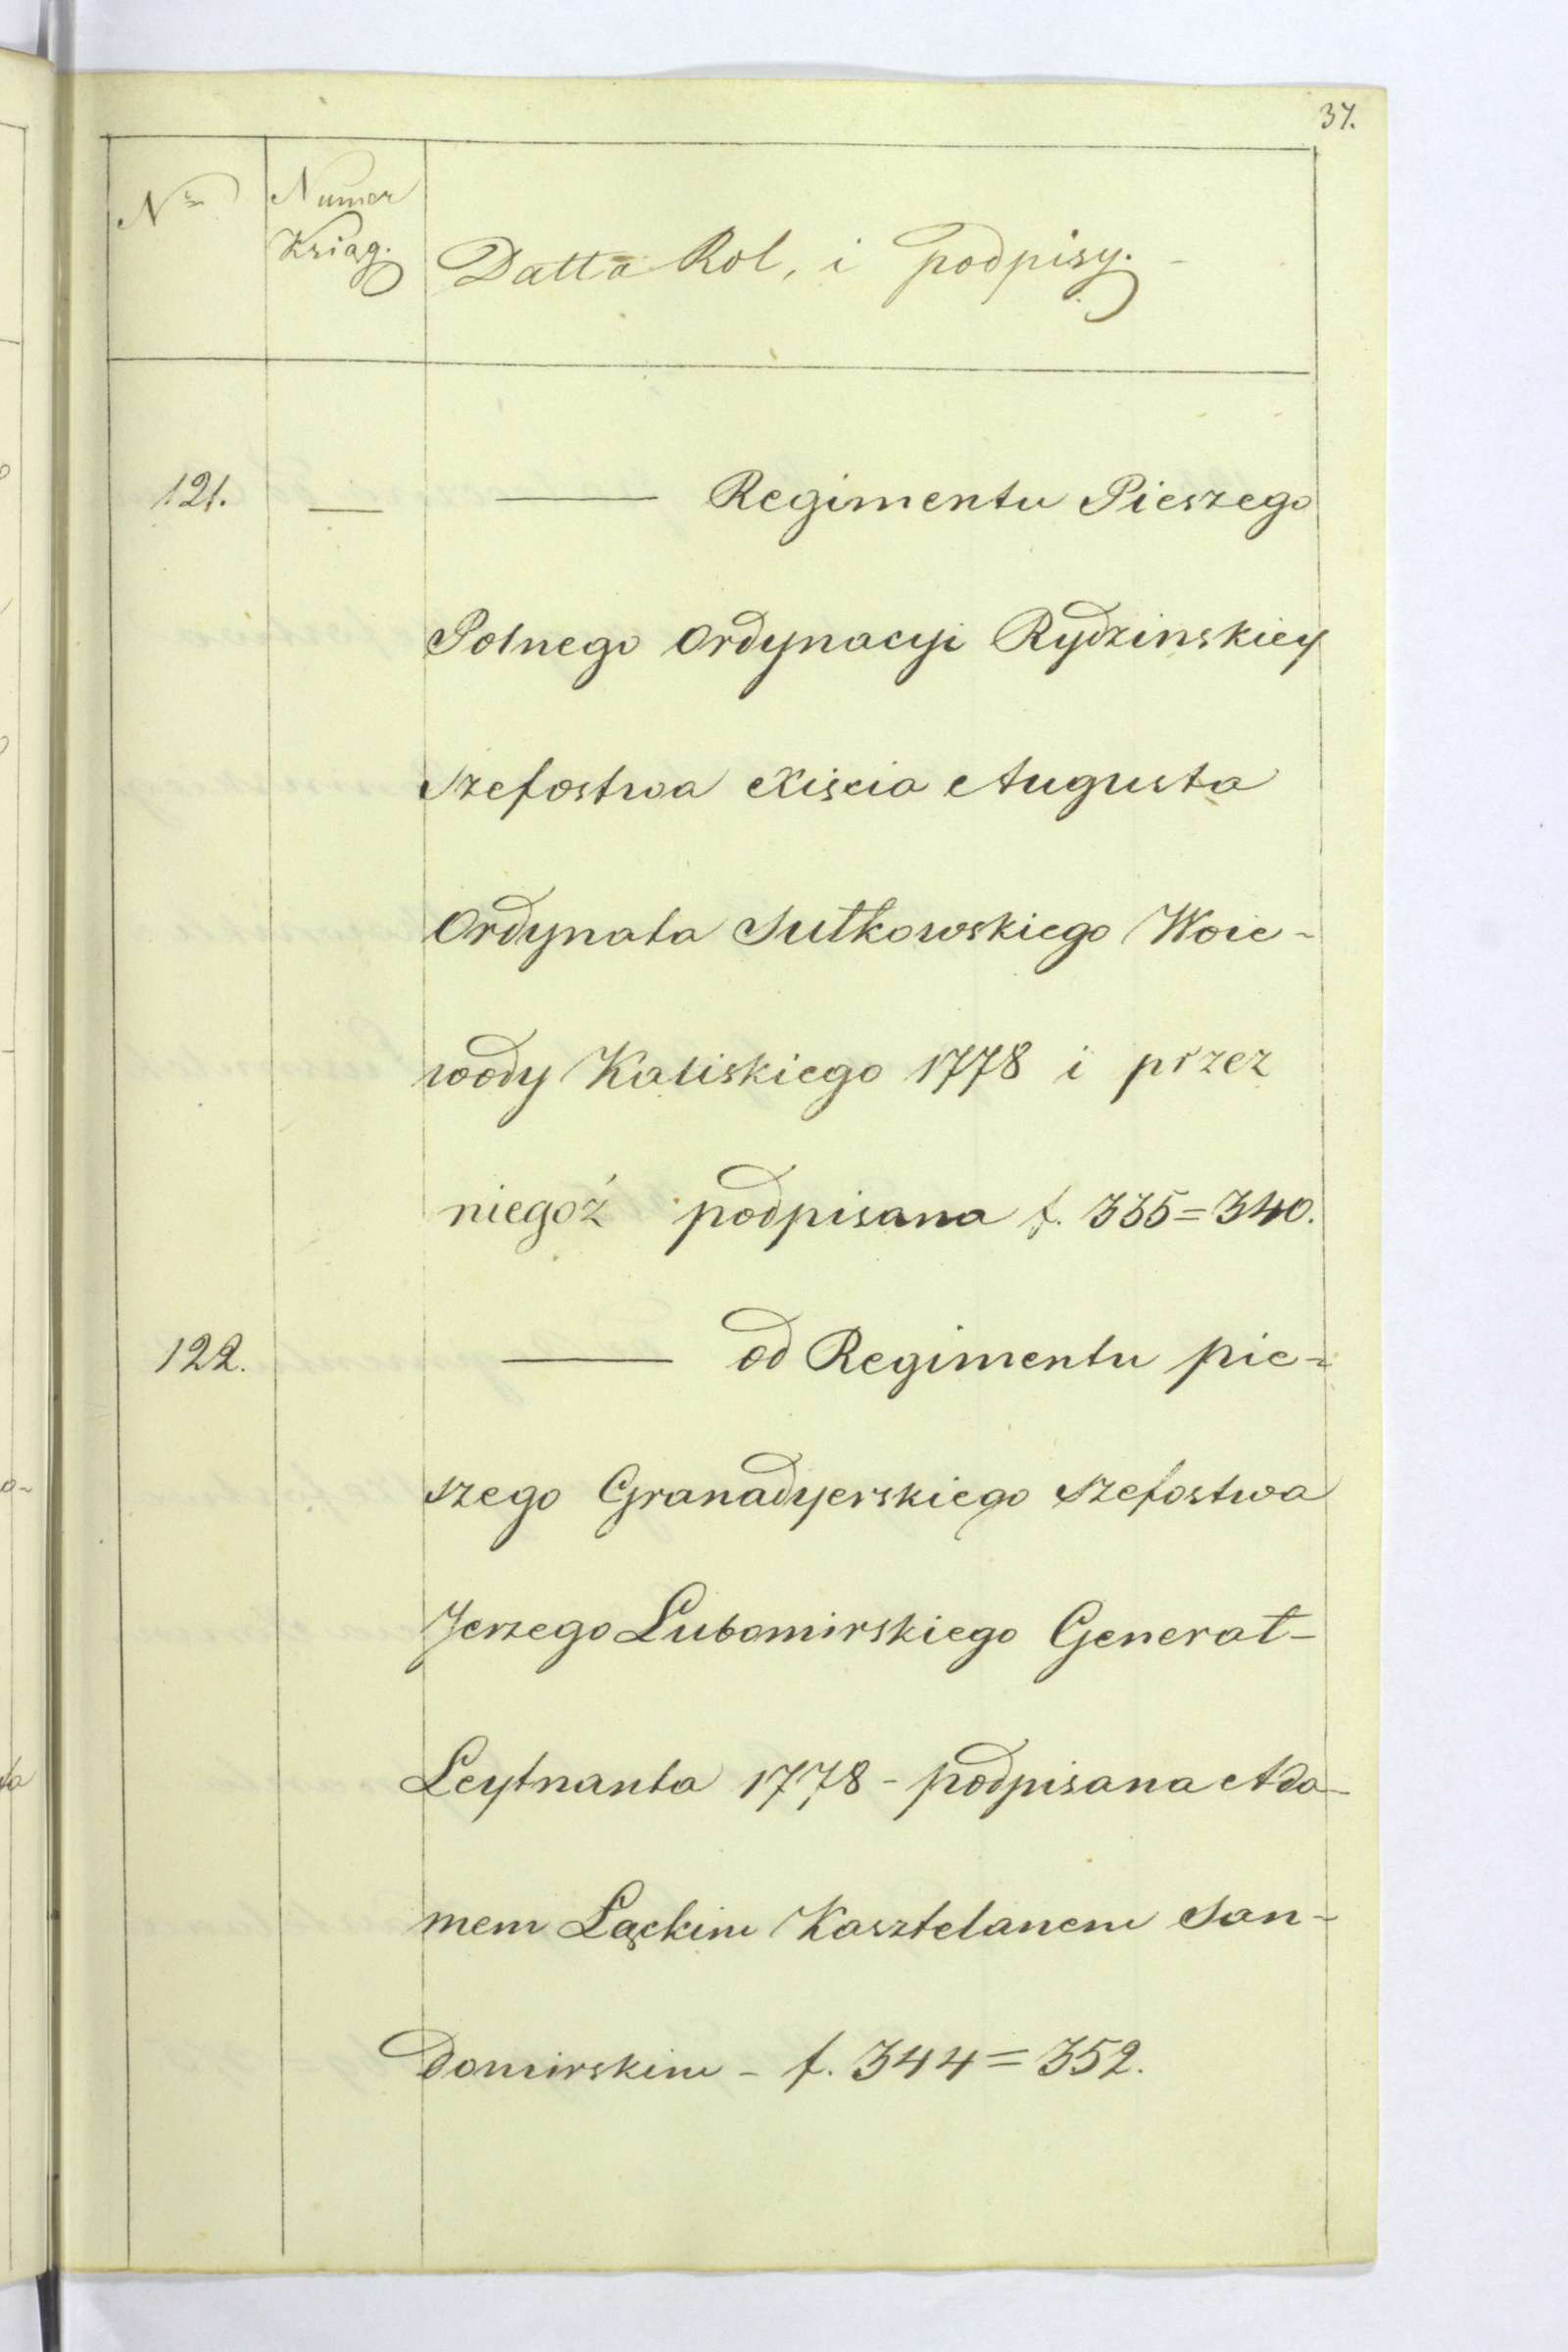 37.
Nro
Numer
Ksiąg.
Datta Rol, i podpisy. -
121. — —— Regimentu Pieszego
Polnego Ordynacyi Rydzinskiey
Szefostwa Xiścia Augusta
Ordynata Sułkowskiego Woie-
wody Kaliskiego 1778 i przez
niegoż podpisana f. 335=340.
122. —— od Regimentu pie-
szego Granadyerskiego Szefostwa
Jerzego Lubomirskiego Generał-
Leytnanta 1778 - podpisana Ada-
mem Łąckim Kasztelanem San-
domirskim - f. 344=352.